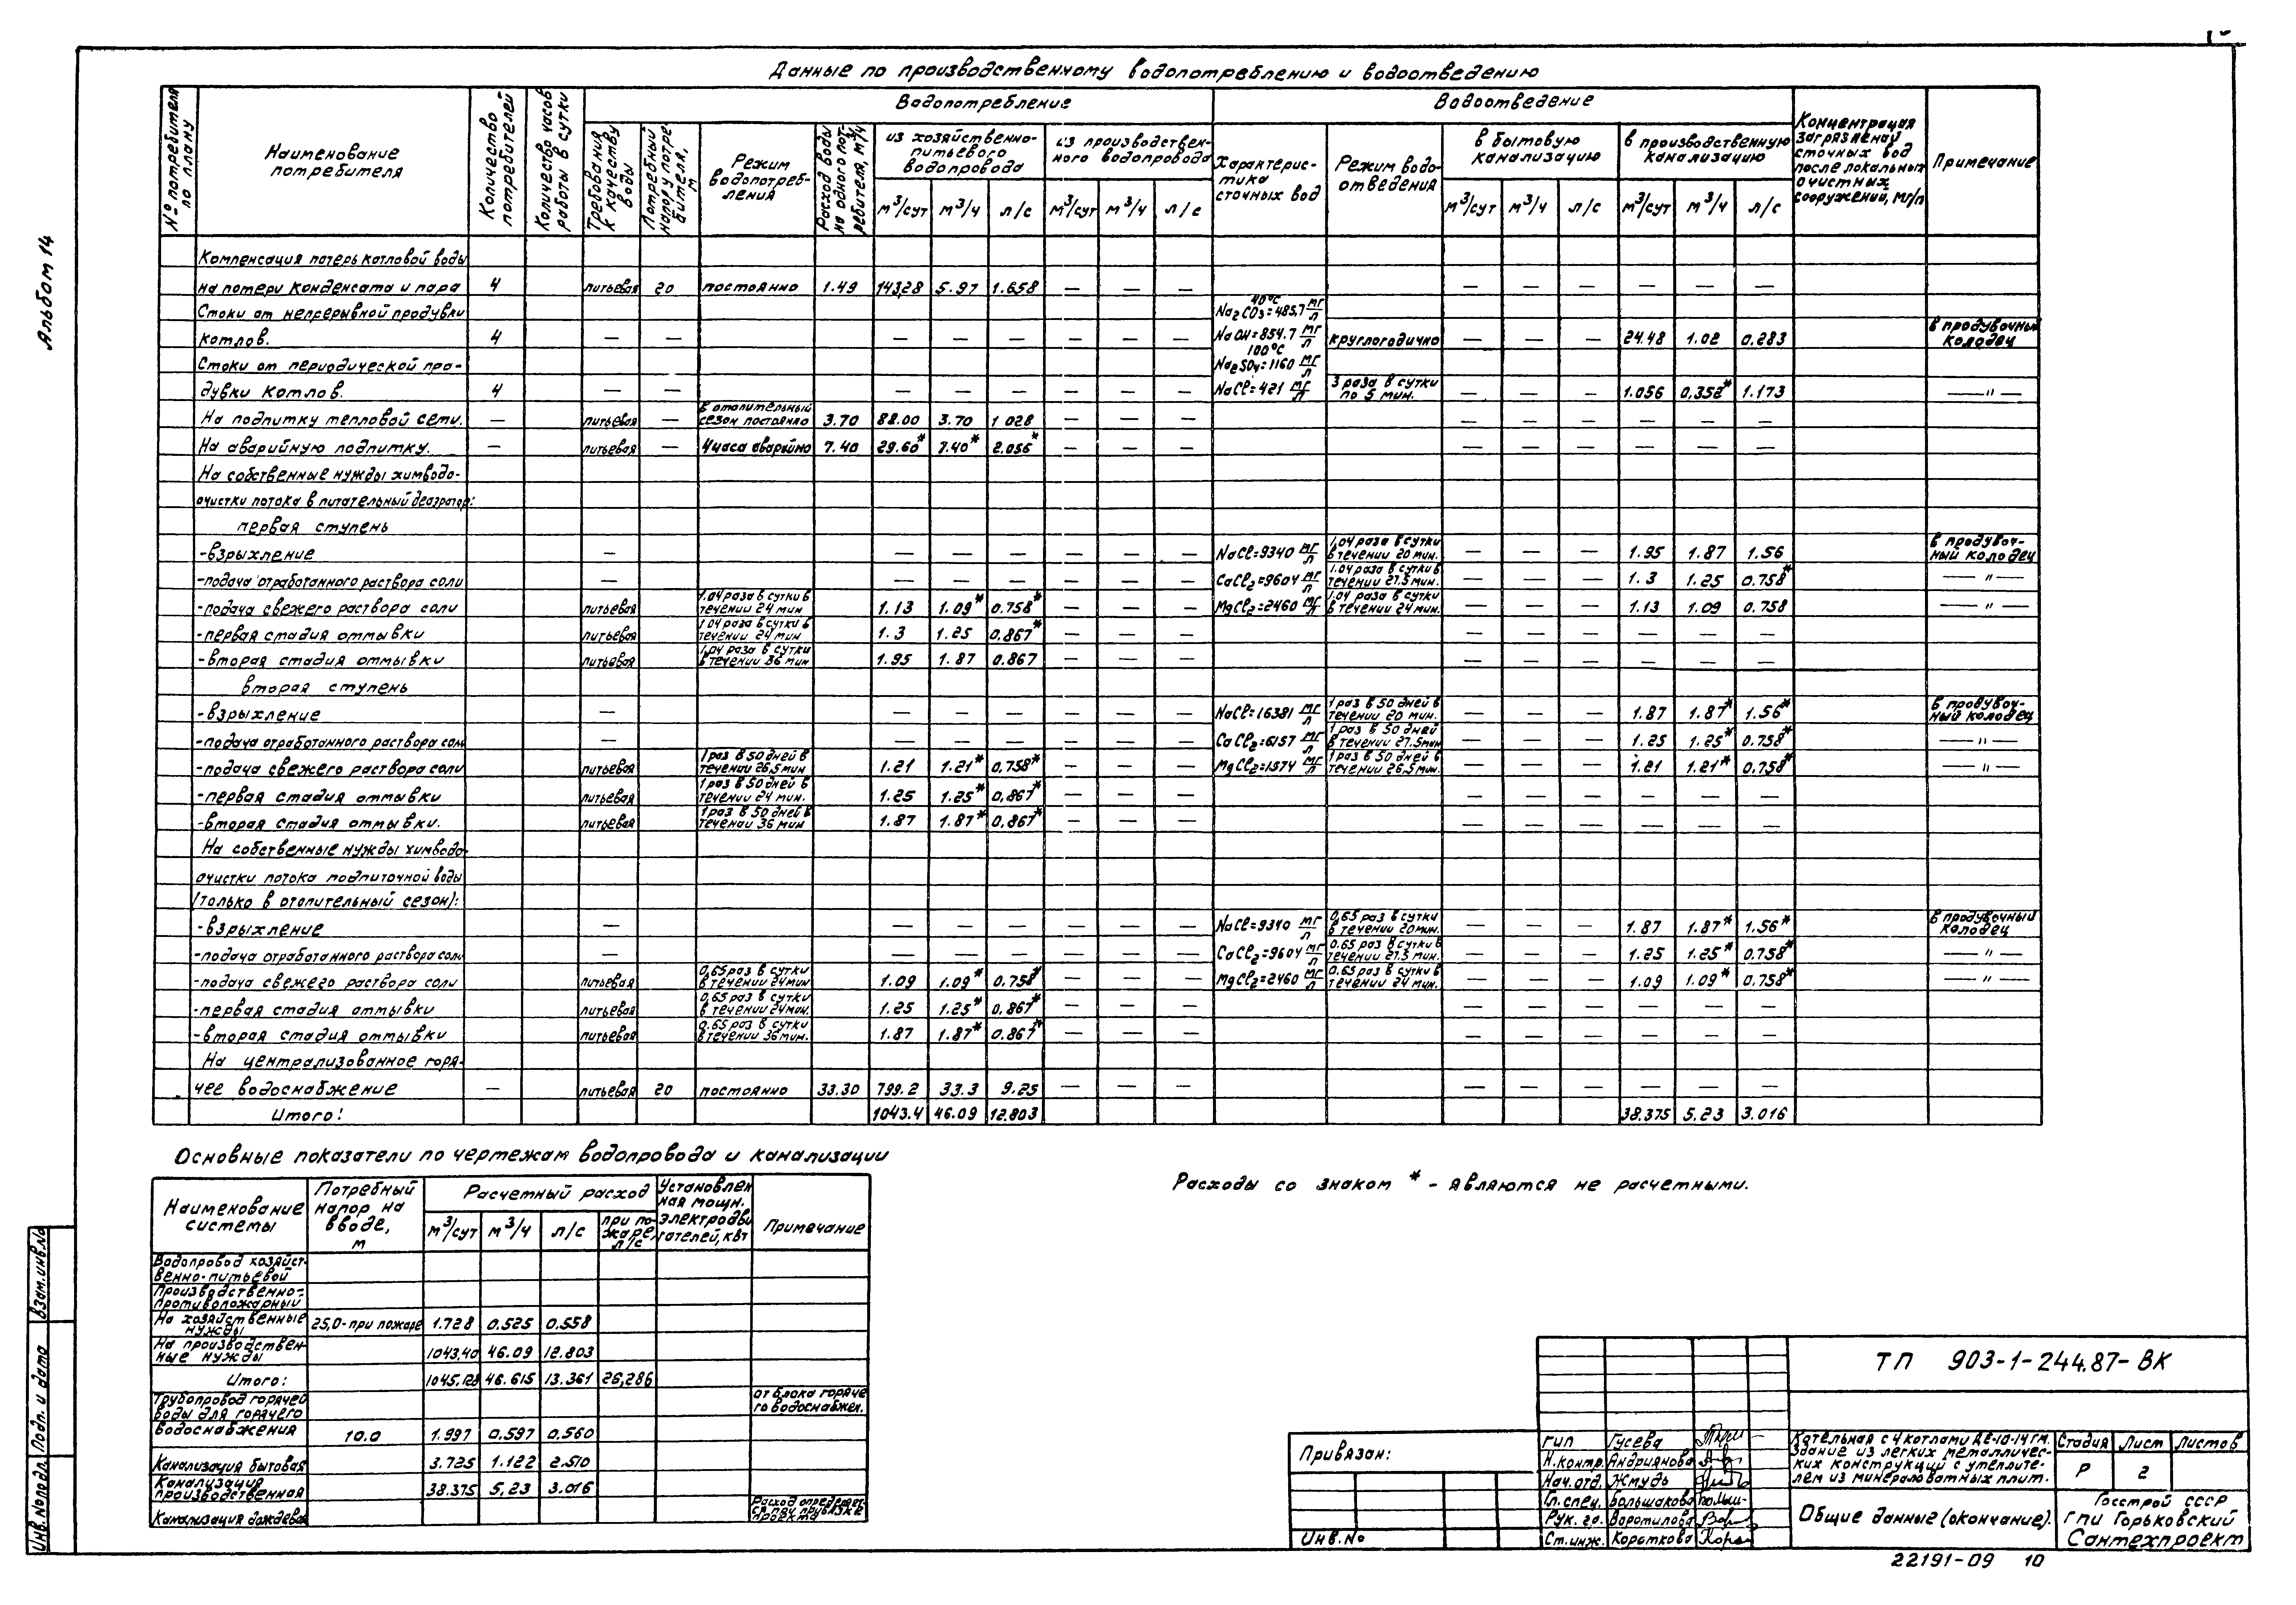 Альбом 14
Данные по производственному водопотреблению и водоотведению
№ потребителя по плану
Наименование потребителя
Количество потребителей
Количество часов работы в сутки
Водопотребление
Требования к качеству воды
Потребный напор у потребителя, м
Режим водопотребления
Расход воды на одного потребителя, м³/ч
из хозяйственно-питьевого водопровода
м³/сут м³/ч л/с
из производственного водопровода
м³/сут м³/ч л/с
Водоотведение
Характеристика сточных вод
Режим водоотведения
в бытовую канализацию
м³/сут м³/ч л/с
в производственную канализацию
м³/сут м³/ч л/с
Концентрация загрязнений сточных вод после локальных очистных сооружений, мг/л
Примечание
Компенсация потерь котловой воды
на потери конденсата и пара 4 питьевая 20 постоянно 1.49 143,28 5.97 1.658 — — — — — — — — —
Стоки от непрерывной продувки 40°С Na2CO3=485.7 мг/л
котлов. 4 — — — — — — — — NaOH=854.7 мг/л круглогодично — — — 24.48 1.02 0.283 в продувочный колодец
Стоки от периодической про- 100°С Na2SO4=1160 мг/л
дувки котлов. 4 — — — — — — — — NaCl=421 мг/л 3 раза в сутки по 5 мин. — — — 1.056 0,352* 1.173 —"—
На подпитку тепловой сети. — питьевая — в отопительный сезон постоянно 3.70 88.00 3.70 1 028 — — — — — — — — —
На аварийную подпитку. — питьевая — 4 часа аварийно 7.40 29.60* 7.40* 2.056* — — — — — — — — —
На собственные нужды химводо-
очистки потока в питательный деаэратор:
первая ступень
-взрыхление — — — — — — — NaCl=9340 мг/л 1,04 раза в сутки в течении 20 мин. — — — 1.95 1.87 1.56 в продувочный колодец
-подача отработанного раствора соли — — — — — — — CaCl2=9604 мг/л 1.04 раза в сутки в течении 27.5 мин. — — — 1.3 1.25 0.758* —"—
-подача свежего раствора соли питьевая 1.04 раза в сутки в течении 24 мин 1.13 1.09* 0.758* — — — MgCl2=2460 мг/л 1.04 раза в сутки в течении 24 мин. — — — 1.13 1.09 0.758 —"—
-первая стадия отмывки питьевая 1 04 раза в сутки в течении 24 мин 1.3 1.25 0.867* — — — — — — — — —
-вторая стадия отмывки питьевая 1,04 раза в сутки в течении 36 мин 1.95 1.87 0.867 — — — — — — — — —
вторая ступень
-взрыхление — — — — — — — NaCl=16381 мг/л 1 раз в 50 дней в течении 20 мин. — — — 1.87 1.87* 1.56* в продувочный колодец
-подача отработанного раствора соли — — — — — — — CaCl2=6157 мг/л 1 раз в 50 дней в течении 27.5мин — — — 1.25 1.25* 0.758* —"—
-подача свежего раствора соли питьевая 1 раз в 50 дней в течении 26,5 мин 1.21 1.21* 0,758* — — — MgCl2=1574 мг/л 1 раз в 50 дней в течении 26,5 мин. — — — 1.21 1.21* 0.758* —"—
-первая стадия отмывки питьевая 1 раз в 50 дней в течении 24 мин. 1.25 1.25* 0,867* — — — — — — — — —
-вторая стадия отмывки. питьевая 1 раз в 50 дней в течении 36 мин 1.87 1.87* 0.867* — — — — — — — — —
На собственные нужды химводо-
очистки потока подпиточной воды
(только в отопительный сезон):
-взрыхление — — — — — — — NaCl=9340 мг/л 0,65 раз в сутки в течении 20мин. — — — 1.87 1.87* 1.56* в продувочный колодец
-подача отработанного раствора соли — — — — — — — CaCl2=9604 мг/л 0.65 раз в сутки в течении 27.5 мин. — — — 1.25 1.25* 0.758* —"—
-подача свежего раствора соли питьевая 0,65 раз в сутки в течении 24мин 1.09 1.09* 0.758* — — — MgCl2=2460 мг/л 0.65 раз в сутки в течении 24 мин. — — — 1.09 1.09* 0.758* —"—
-первая стадия отмывки питьевая 0,65 раз в сутки в течении 24мин. 1.25 1.25* 0.867* — — — — — — — — —
-вторая стадия отмывки питьевая 0.65 раз в сутки в течении 36 мин. 1.87 1.87* 0.867* — — — — — — — — —
На централизованное горя-
чее водоснабжение — питьевая 20 постоянно 33.30 799.2 33.3 9.25 — — — — — — — — —
Итого: 1043.4 46.09 12.803 38.375 5.23 3.016
Расходы со знаком * - являются не расчетными.
Основные показатели по чертежам водопровода и канализации
Наименование системы
Потребный напор на вводе, м
Расчетный расход
м³/сут м³/ч л/с при пожаре, л/с
Установленная мощн. электродвигателей, квт
Примечание
Водопровод хозяйственно-питьевой
Производственно-противопожарный
На хозяйственные нужды 25,0-при пожаре 1.728 0.525 0.558
На производственные нужды 1043,40 46.09 12.803
Итого: 1045,128 46.615 13.361 26,286
Трубопровод горячей воды для горячего водоснабжения 10.0 1.997 0.597 0.560 от блока горячего водоснабжен.
Канализация бытовая 3.725 1.122 2.510
Канализация производственная 38.375 5,23 3.016
Канализация дождевая Расход определяется при привязке проекта
Взам.инв.№
Подп. и дата
Инв.№подл.
Привязан:
Инв.№
ГИП Гусева
Н.контр. Андриянова
Нач.отд. Жмудь
Гл.спец. Большакова
Рук. гр. Воротилова
Ст.инж. Короткова
ТП 903-1-244.87-ВК
Котельная с 4 котлами ДЕ-10-14ГМ.
Здание из легких металличес-
ких конструкций с утеплите-
лем из минераловатных плит.
Стадия Лист Листов
Р 2
Общие данные (окончание).
Госстрой СССР
ГПИ Горьковский
Сантехпроект
22191-09 10